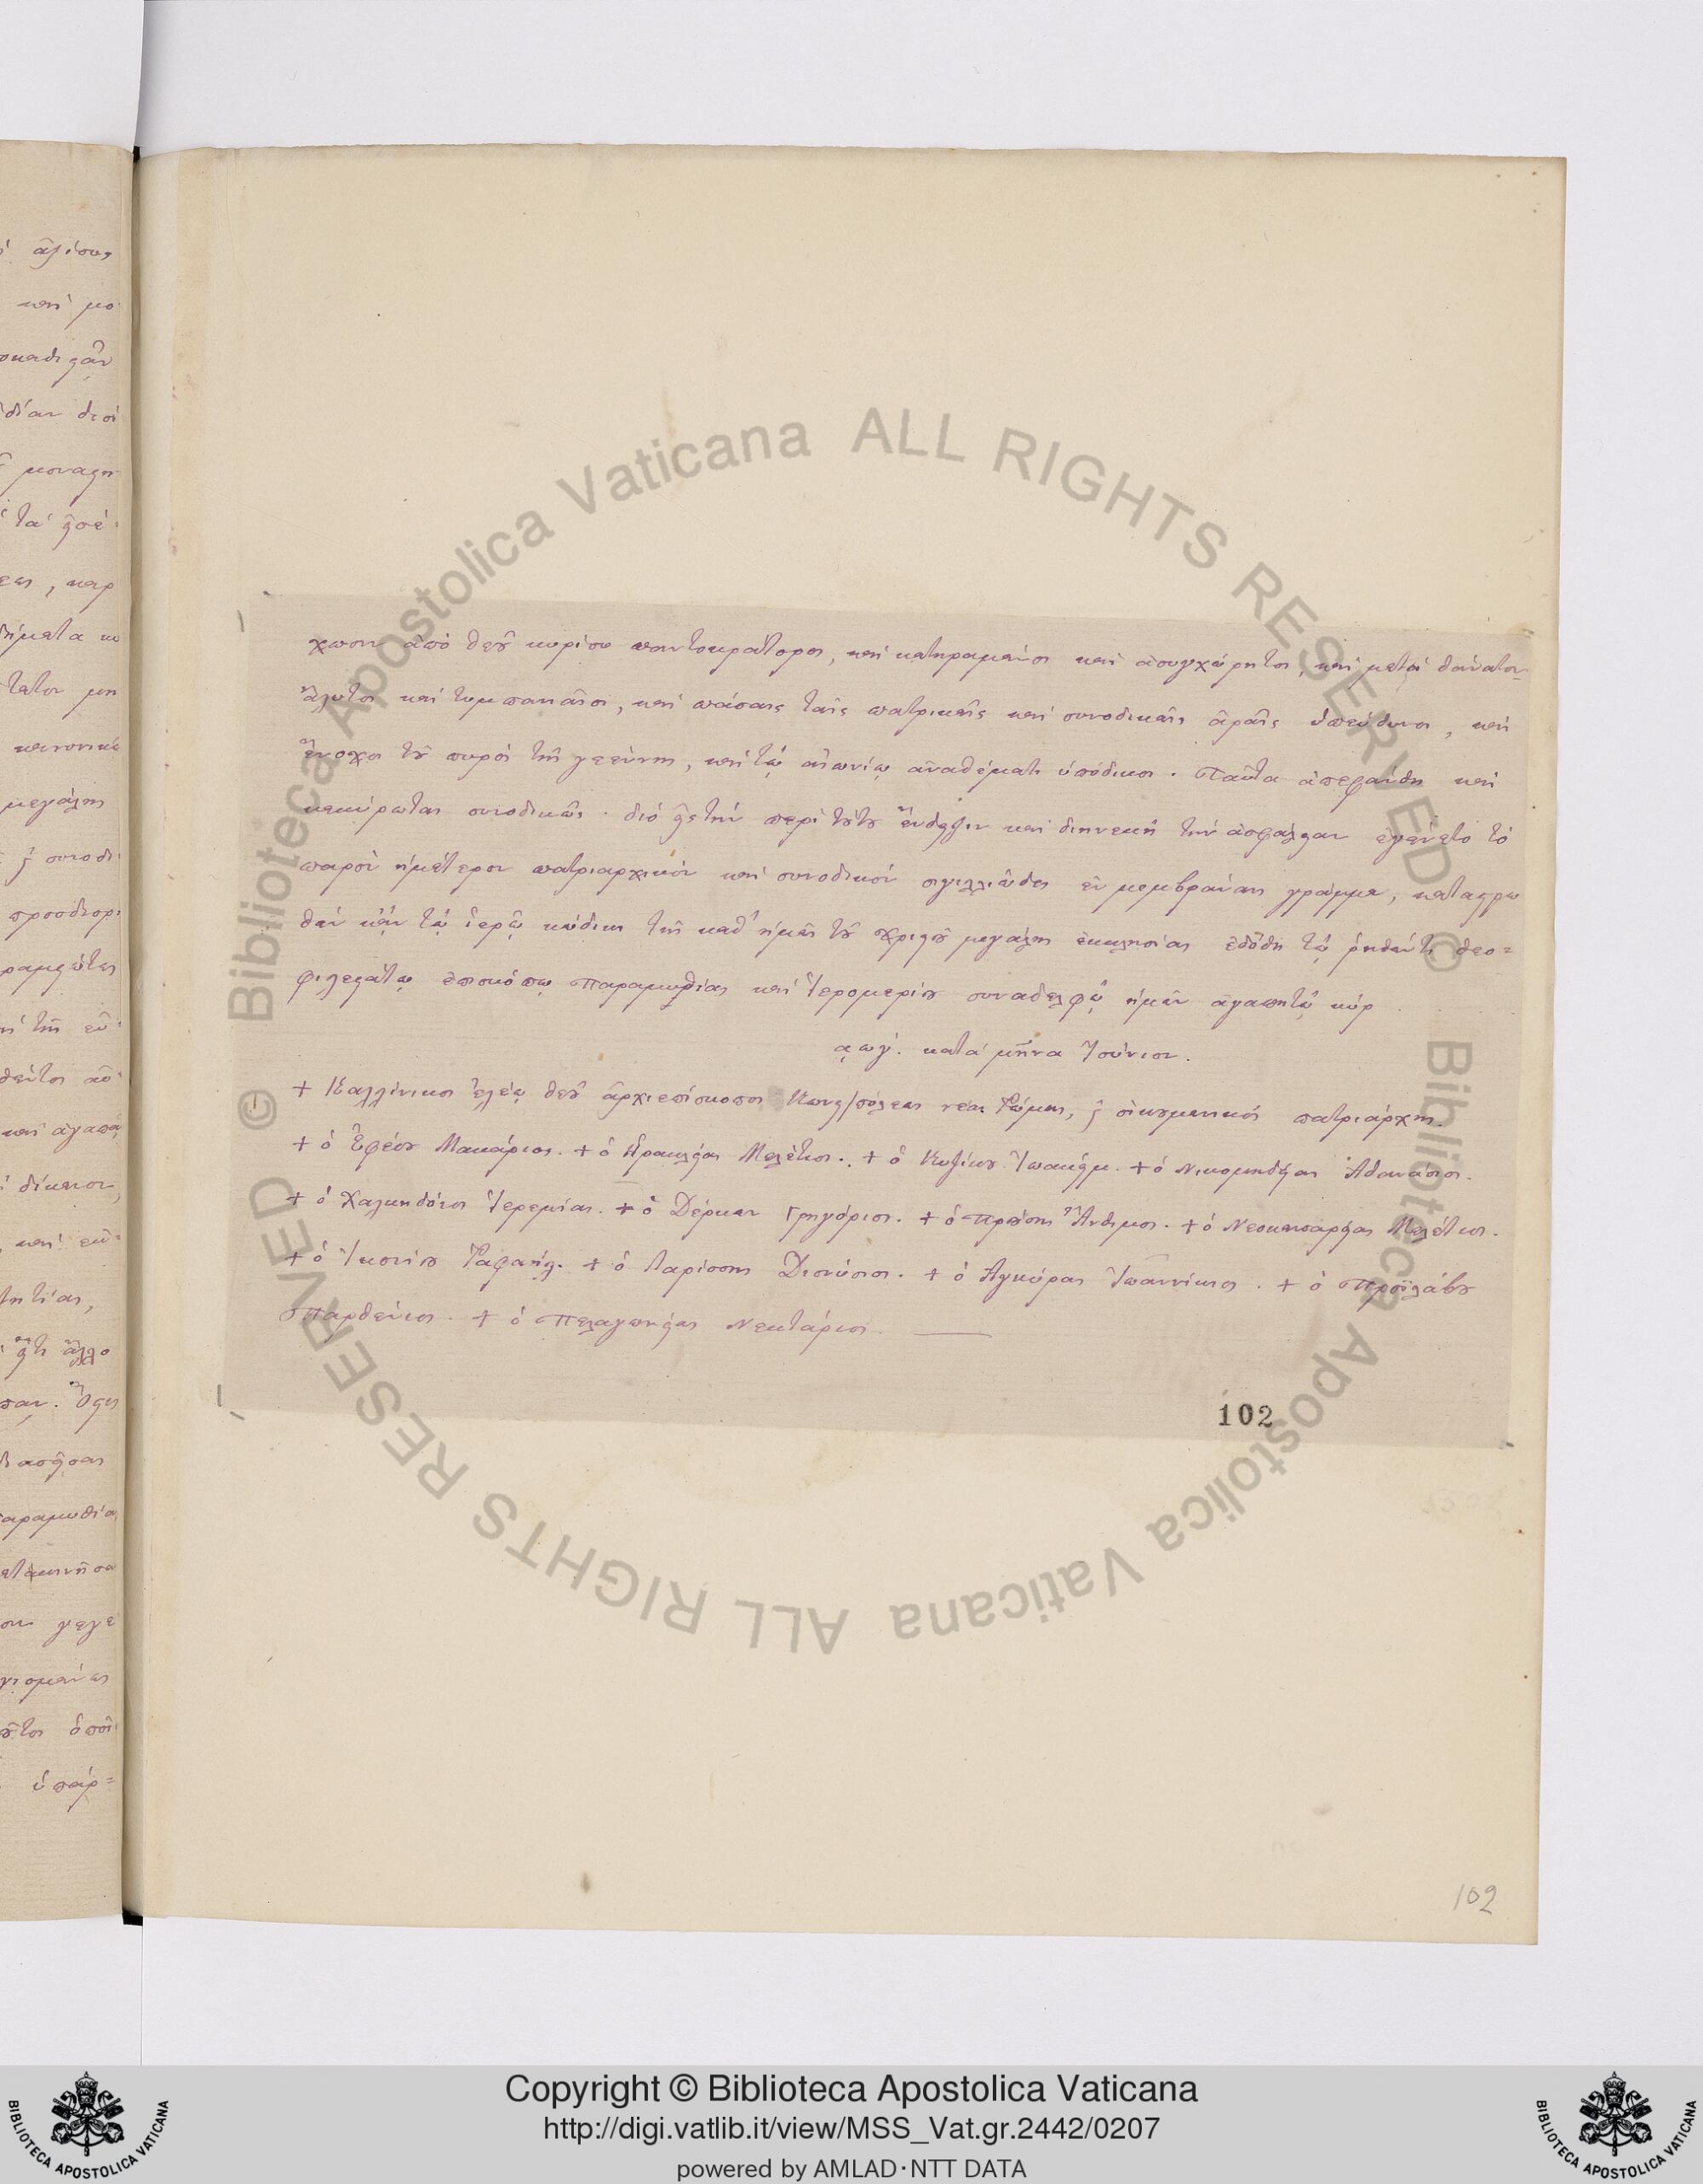 χωσιν ἀπὸ θεοῦ κυρίου παντοκράτορος, καὶ κατηραμένοι καὶ ἀσυγχώρητοι, καὶ μετὰ θάνατον
ἄλυτοι καὶ τυμπανιαῖοι, καὶ πάσαις ταῖς πατρικαῖς καὶ συνοδικαῖς ἀραῖς ὑπεύθυνοι, καὶ
ἔνοχοι τοῦ πυρὸς τῆς γεέννης, καὶ τῷ αἰωνίῳ ἀναθέματι ὑπόδικοι. Ταῦτα ἀπεφάνθη καὶ
κεκύρωται συνοδικῶς. διὸ εἰς τὴν περὶ τούτου ἔνδειξιν καὶ διηνεκῆ τὴν ἀσφάλειαν ἐγένετο τὸ
παρὸν ἡμέτερον πατριαρχικὸν καὶ συνοδικὸν σιγιλλιῶδες ἐν μεμβράναις γράμμα, καταστρω
θὲν κἀν τῷ ἱερῷ κώδικι τῆς καθ' ἡμᾶς τοῦ Χριστοῦ μεγάλης ἐκκλησίας ἐδόθη τῷ ῥηθέντι θεο=
φιλεστάτῳ ἐπισκόπῳ Παραμυθίας καὶ Ἱερομερίου συναδελφῷ ἡμῶν ἀγαπητῷ κὺρ
͵αωγ΄. κατὰ μῆνα Ἰούνιον.
+ Καλλίνικος ἐλέῳ θεοῦ ἀρχιεπίσκοπος Κωνς/πόλεως νέας Ῥώμης, ϗ οἰκουμενικὸς πατριάρχης.
+ ὁ Ἐφέσου Μακάριος. + ὁ Ἡρακλείας Μελέτιος. + ὁ Κυζίκου Ἰωακείμ. + ὁ Νικομηδείας Ἀθανάσιος.
+ ὁ Χαλκηδόνος Ἱερεμίας. + ὁ Δέρκων Γρηγόριος. + ὁ Προύσης Ἄνθιμος. + ὁ Νεοκαισαρείας Μελέτιος.
+ ὁ Ἰκονίου Ῥαφαήλ. + ὁ Λαρίσσης Διονύσιος. + ὁ Ἀγκύρας Ἰωαννίκιος. + ὁ Προϊλάβου
Παρθένιος. + ὁ Πελαγωνείας Νεκτάριος.
102
102
Copyright © Biblioteca Apostolica Vaticana
http://digi.vatlib.it/view/MSS_Vat.gr.2442/0207
powered by AMLAD·NTT DATA
BIBLIOTECA APOSTOLICA VATICANA
BIBLIOTECA APOSTOLICA VATICANA
© Biblioteca Apostolica Vaticana ALL RIGHTS RESERVED
© Biblioteca Apostolica Vaticana ALL RIGHTS RESERVED